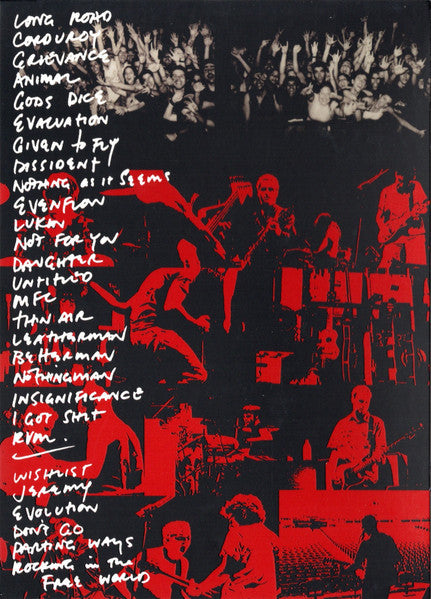 LONG ROAD
CORDUROY
GRIEVANCE
ANIMAL
GODS DICE
EVACUATION
GIVEN to FLY
DISSIDENT
NOTHING AS it SEEMS
EVENFLOW
LUKIN
NOT FOR YOU
DAUGHTER
UNTITLED
MFC
THIN AIR
LEATHERMAN
BETTERMAN
NOTHINGMAN
INSIGNIFICANCE
I GOT SHIT
RVM.
WISHLIST
JEREMY
EVOLUTION
DON'T GO
PARTING WAYS
ROCKING in the
FREE WORLD